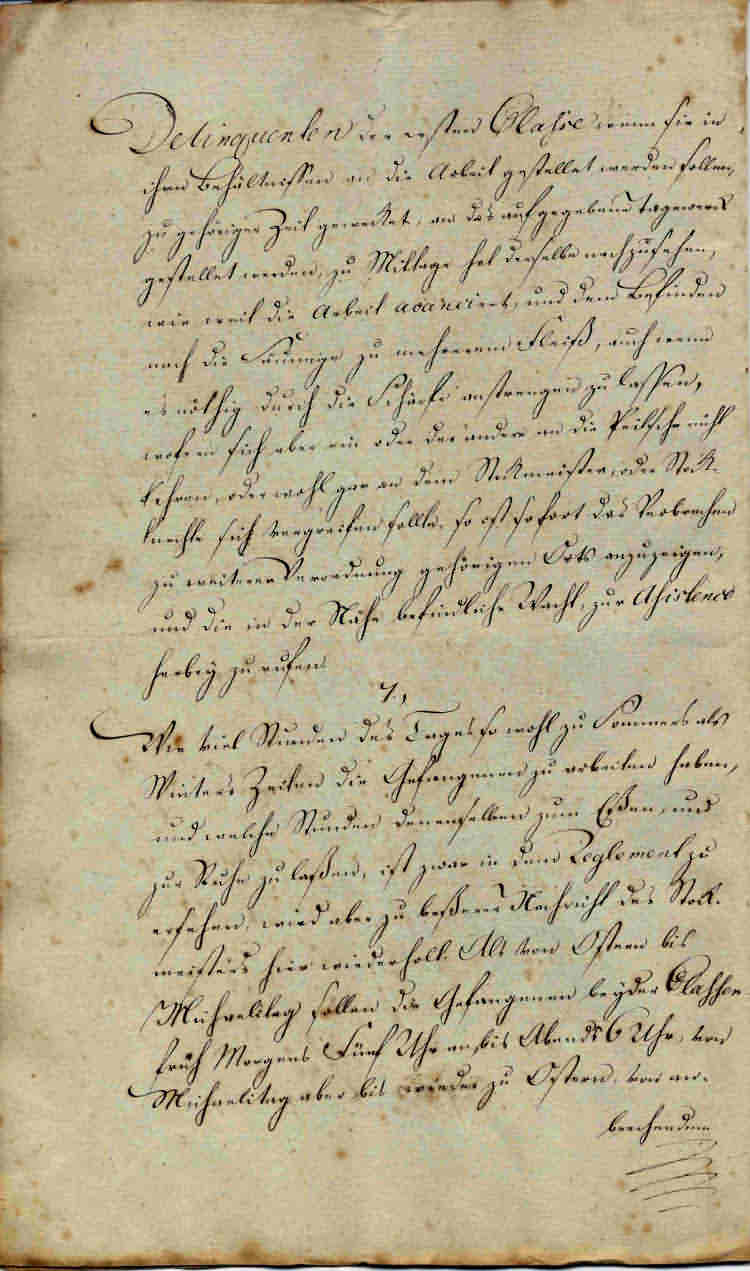 Delinquenten der ersten Classe wenn sie in
ihren Behältnissen an die Arbeit gestellet werden sollen,
zu gehöriger Zeit gewecket, an das aufgegebene Tagewerk
gestellet werden, zu Mittage hat derselbe nachzusehen,
wie weit die Arbeit avanciret, und dem Befinden
nach die Säumige zu mehrerem Fleiß, auch wenn
es nöthig durch die Schärfe anstrengen zu lassen,
wofern sich aber ein oder der andere an die Peitsche nicht
kehren, oder wohl gar an dem Stockmeister, oder Stock-
knechte sich vergreifen sollte, so ist sofort das Verbrechen
zu weiterer Verordnung gehörigen Orts anzuzeigen,
und die in der Nähe befindliche Wacht, zur Assistence
herbey zu rufen
7.,
Wie viel Stunden des Tages so wohl zu Sommers als
Winters Zeiten die Gefangenen zu arbeiten haben,
und welche Stunden denenselben zum Eßen, und
zur Ruhe zu laßen, ist zwar in dem Reglement zu
ersehen, wird aber zu beßerer Nachricht des Stock-
meisters hier wiederholt. Als von Ostern bis
Michaelitag sollen die Gefangenen beyder Classen
früh Morgens Fünf Uhr an, bis Abends 6 Uhr, von
Michaelitag aber bis wieder zu Ostern, von an-
brechendem